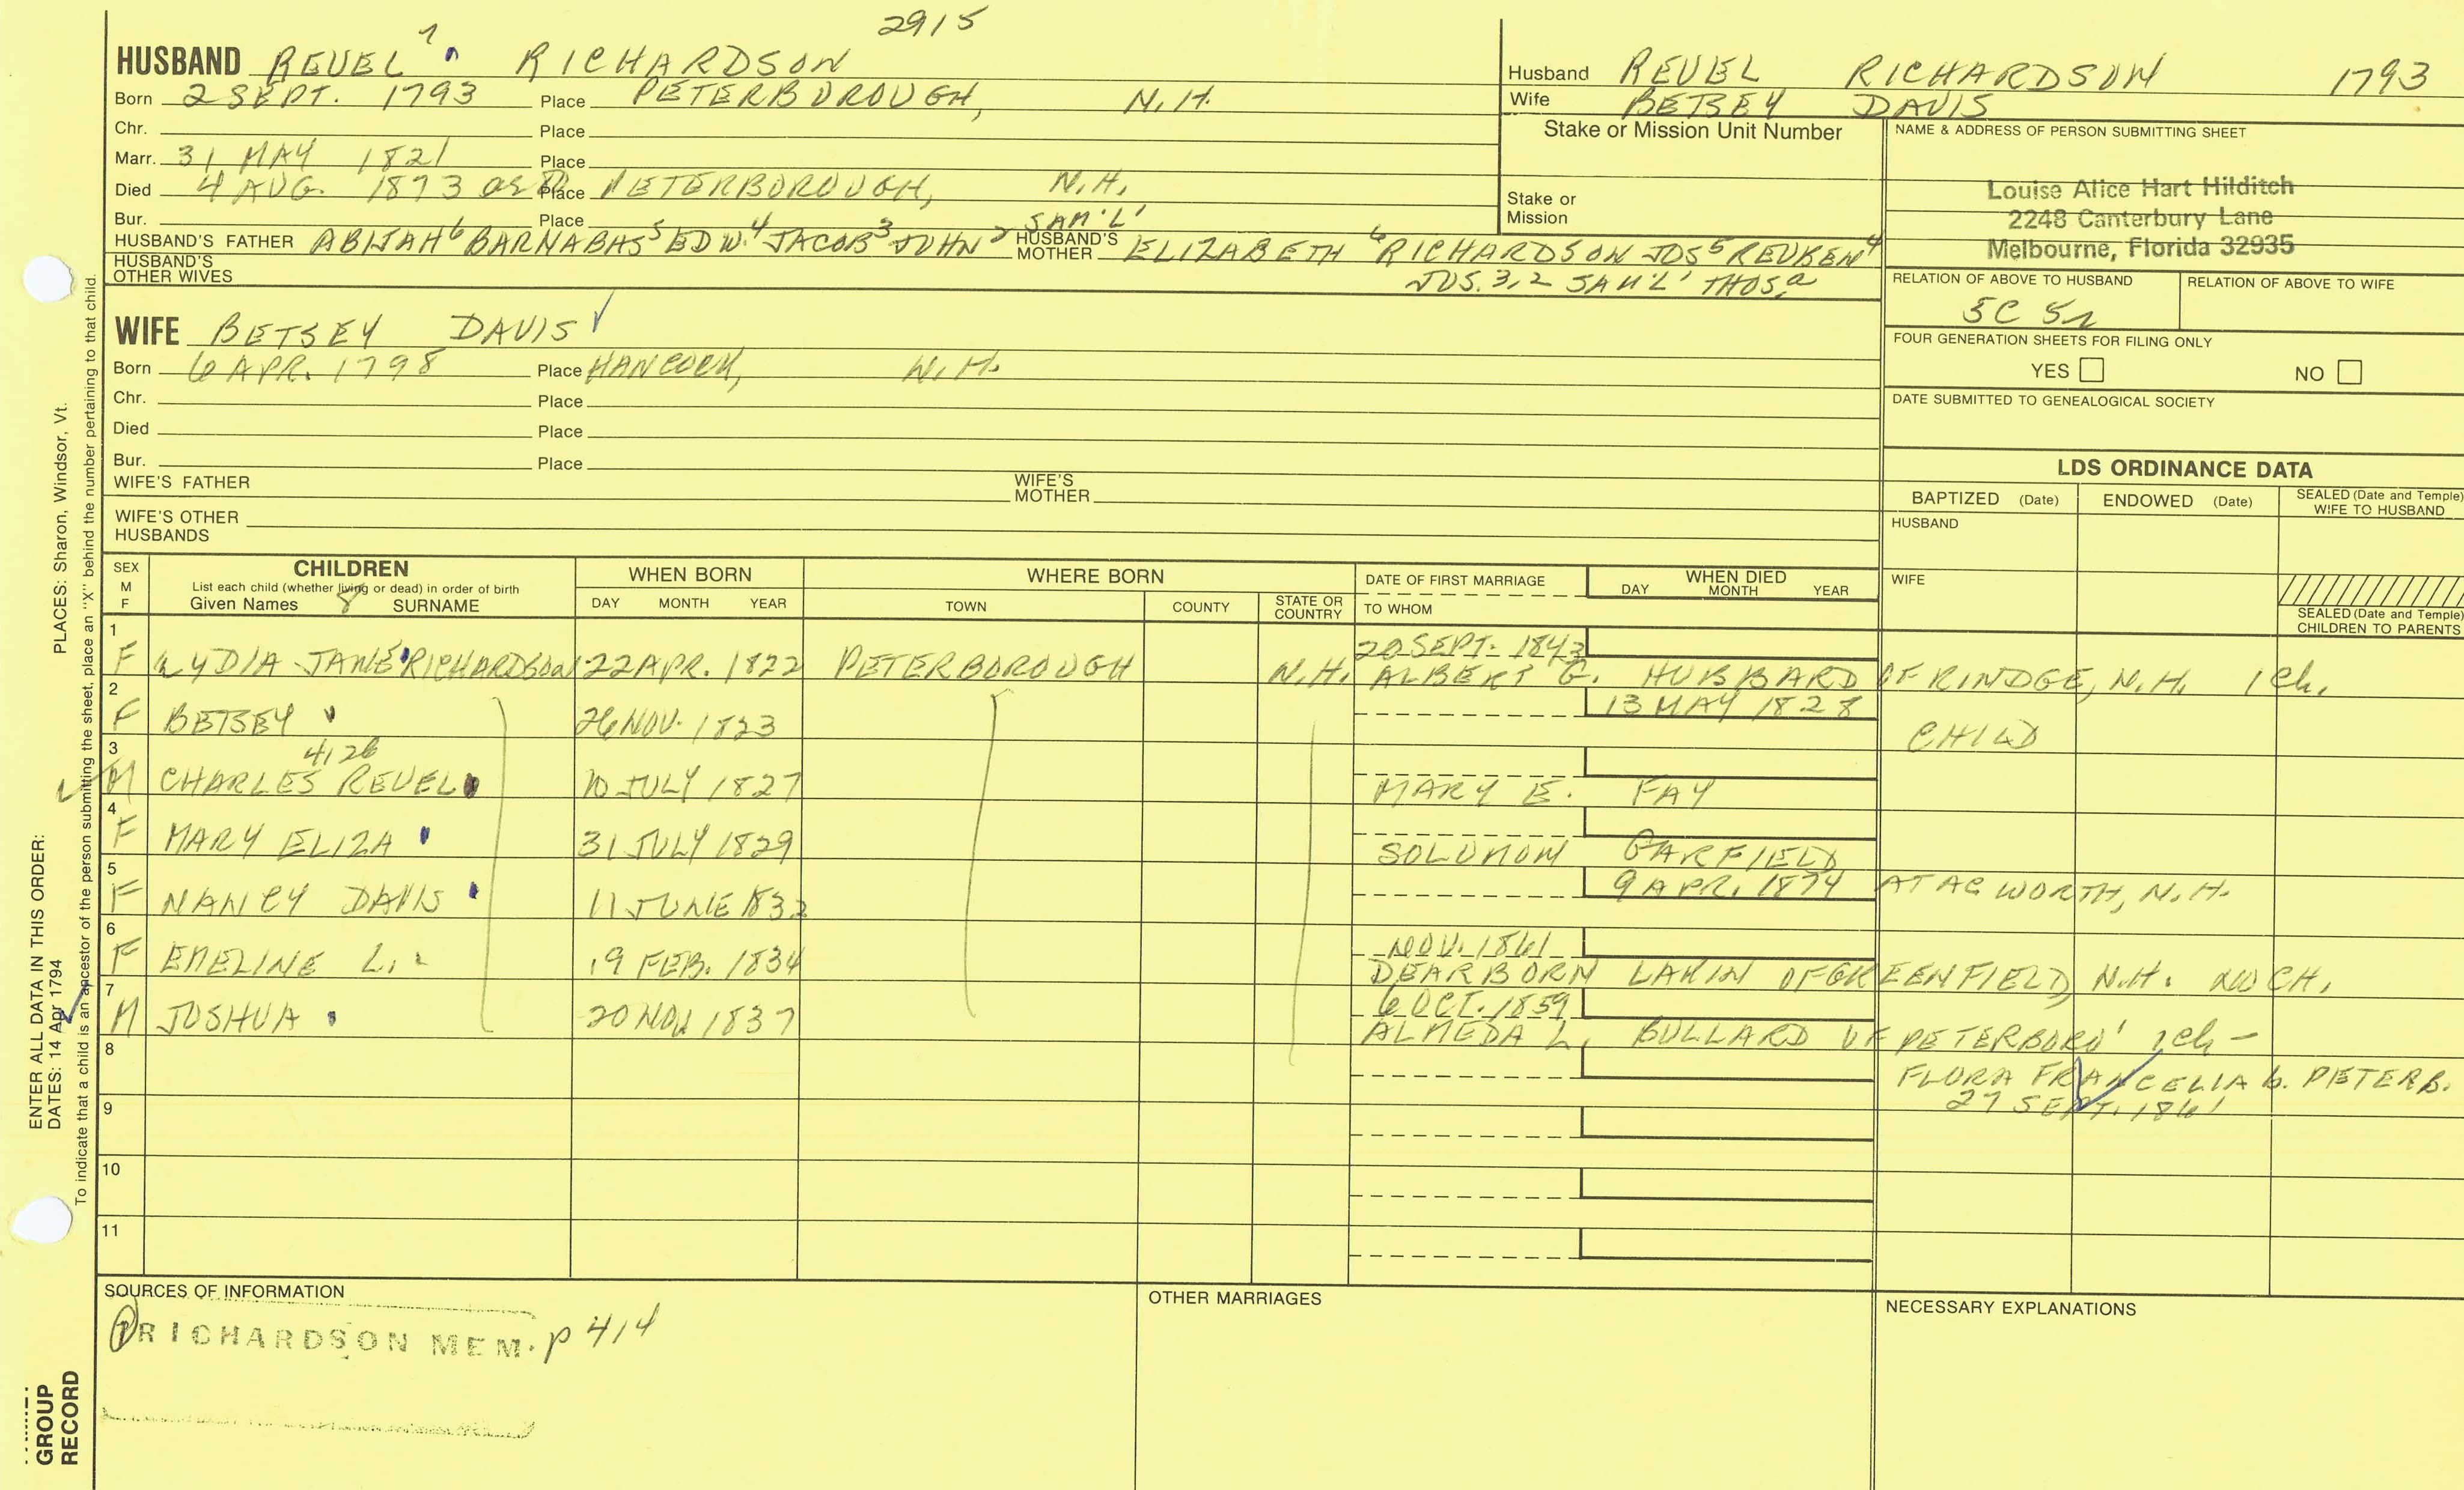 2915
HUSBAND REUEL 7 RICHARDSON
Born 2 SEPT. 1793 Place PETERBOROUGH, N.H.
Chr. Place
Marr. 31 MAY 1821 Place
Died 4 AUG. 1873 Place PETERBOROUGH, N.H.
Bur. Place SAM'L'
HUSBAND'S FATHER ABIJAH6 BARNABAS5 EDW.4 JACOB3 JOHN2 HUSBAND'S MOTHER ELIZABETH 6 RICHARDSON JOS5 REUBEN4
HUSBAND'S OTHER WIVES JOS.3,2 SAM'L' THOS.a
WIFE BETSEY DAVIS
Born 6 APR. 1798 Place HANCOCK, N.H.
Chr. Place
Died Place
Bur. Place
WIFE'S FATHER WIFE'S MOTHER
WIFE'S OTHER HUSBANDS
Husband REUEL RICHARDSON 1793
Wife BETSEY DAVIS
Stake or Mission Unit Number
Stake or Mission
NAME & ADDRESS OF PERSON SUBMITTING SHEET
Louise Alice Hart Hilditch
2248 Canterbury Lane
Melbourne, Florida 32935
RELATION OF ABOVE TO HUSBAND RELATION OF ABOVE TO WIFE
5C 5r
FOUR GENERATION SHEETS FOR FILING ONLY
YES NO
DATE SUBMITTED TO GENEALOGICAL SOCIETY
LDS ORDINANCE DATA
BAPTIZED (Date) ENDOWED (Date) SEALED (Date and Temple) WIFE TO HUSBAND
HUSBAND
WIFE
SEALED (Date and Temple) CHILDREN TO PARENTS
SEX M F
CHILDREN
List each child (whether living or dead) in order of birth
Given Names 8 SURNAME
WHEN BORN
DAY MONTH YEAR
WHERE BORN
TOWN COUNTY STATE OR COUNTRY
DATE OF FIRST MARRIAGE
TO WHOM
WHEN DIED
DAY MONTH YEAR
1 20 SEPT. 1843
F LYDIA JANE RICHARDSON 22 APR. 1822 PETERBOROUGH N.H. ALBERT G. HUBBARD OF RINDGE, N.H. 1 Ch.
2 13 MAY 1828
F BETSEY 26 NOV. 1823 CHILD
3 4126
M CHARLES REUEL 10 JULY 1827 MARY E. FAY
4
F MARY ELIZA 31 JULY 1829 SOLOMON GARFIELD
5 9 APR. 1874 AT ACWORTH, N.H.
F NANCY DAVIS 11 JUNE 1832
6 NOV. 1861
F EMELINE L. 19 FEB. 1834 DEARBORN LAKIN OF GREENFIELD, N.H. NO CH.
7 6 OCT. 1859
M JOSHUA 20 NOV 1837 ALMEDA L. BULLARD OF PETERBORO' 1 Ch -
8 FLORA FRANCELIA b. PETERB.
9 27 SEPT. 1861
10
11
SOURCES OF INFORMATION
1 RICHARDSON MEM. p 414
OTHER MARRIAGES
NECESSARY EXPLANATIONS
PLACES: Sharon, Windsor, Vt.
ENTER ALL DATA IN THIS ORDER:
DATES: 14 Apr 1794
To indicate that a child is an ancestor of the person submitting the sheet, place an "X" behind the number pertaining to that child.
GROUP
RECORD